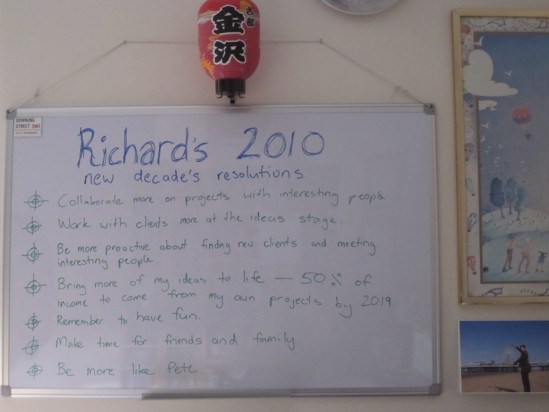 古都
金沢
DOWNING
STREET SW1
Richard's 2010
new decade's resolutions
Collaborate more on projects with interesting people.
Work with clients more at the ideas stage.
Be more proactive about finding new clients and meeting
interesting people.
Bring more of my ideas to life — 50% of
income to come from my own projects by 2019
Remember to have fun.
Make time for friends and family
Be more like Pete